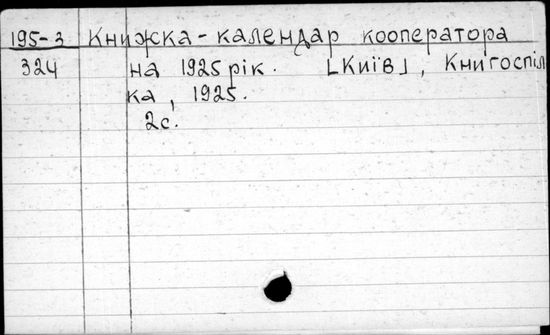 195-3 Книжка-календар кооператора
324 на 1925 рік. [Київ], Книгоспіл
ка, 1925.
2с.